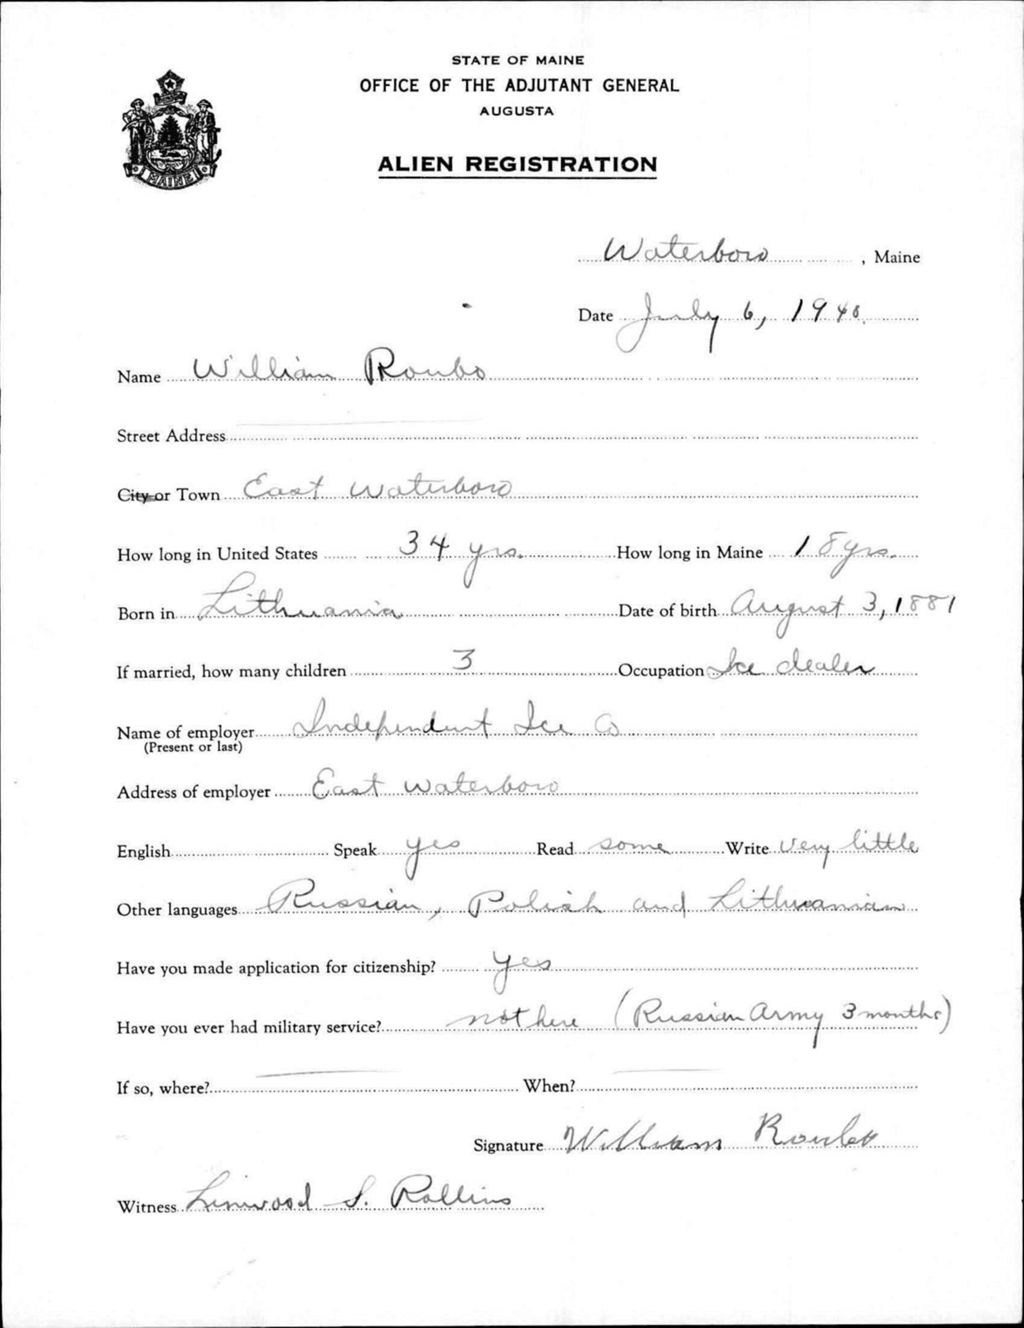 STATE OF MAINE
OFFICE OF THE ADJUTANT GENERAL
AUGUSTA
ALIEN REGISTRATION
MAINE
Waterboro, Maine
Date July 6, 1940
Name William Roubo
Street Address
City or Town East Waterboro
How long in United States 34 yrs. How long in Maine 18 yrs.
Born in Lithuania Date of birth August 3, 1881
If married, how many children 3 Occupation Ice dealer
Name of employer Independent Ice Co
(Present or last)
Address of employer East Waterboro
English Speak yes Read some Write Very little
Other languages Russian, Polish and Lithuanian
Have you made application for citizenship? yes
Have you ever had military service? not here (Russian Army 3 months)
If so, where? When?
Signature William Roubo
Witness Linwood S. Rollins